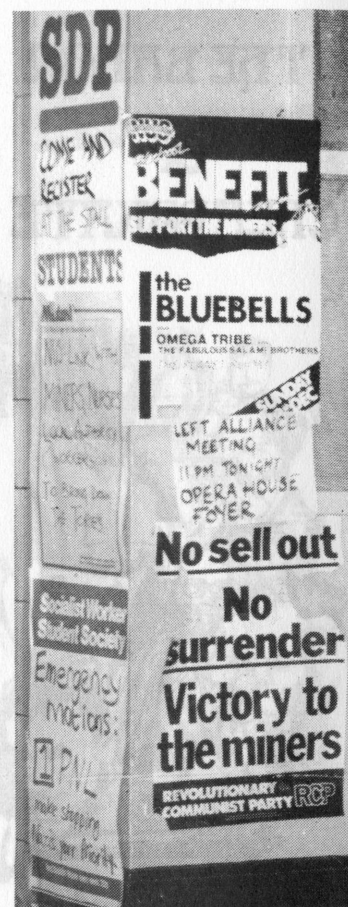 SDP
COME AND
REGISTER
AT THE STALL
STUDENTS
Militant
NUS LINK WITH
MINERS, NURSES
LOCAL AUTHORITY
WORKERS
TO BRING DOWN
THE TORIES
Socialist Worker
Student Society
Emergency
motions:
1 PNL
make stopping
your Priority
NUS
BENEFIT
SUPPORT THE MINERS
the
BLUEBELLS
OMEGA TRIBE
THE FABULOUS SALAMI BROTHERS
SUNDAY
DEC
LEFT ALLIANCE
MEETING
11 PM TONIGHT
OPERA HOUSE
FOYER
No sell out
No
surrender
Victory to
the miners
REVOLUTIONARY
COMMUNIST PARTY RCP